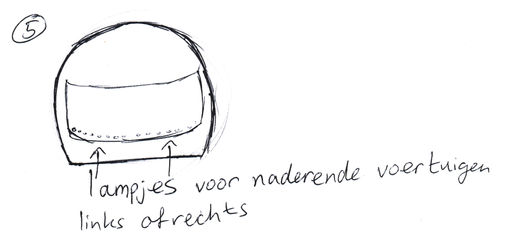 5
lampjes voor naderende voertuigen
links of rechts